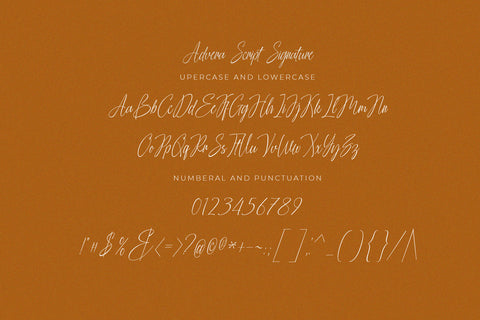 Advera Script Signature
UPERCASE AND LOWERCASE
AaBbCcDdEeFfGgHhIiJjKkLlMmNn
OoPpQqRrSsTtUuVvWwXxYyZz
NUMBERAL AND PUNCTUATION
0123456789
!"#$%&<=>?@©®*+-~:;[],.'^_(){}/\